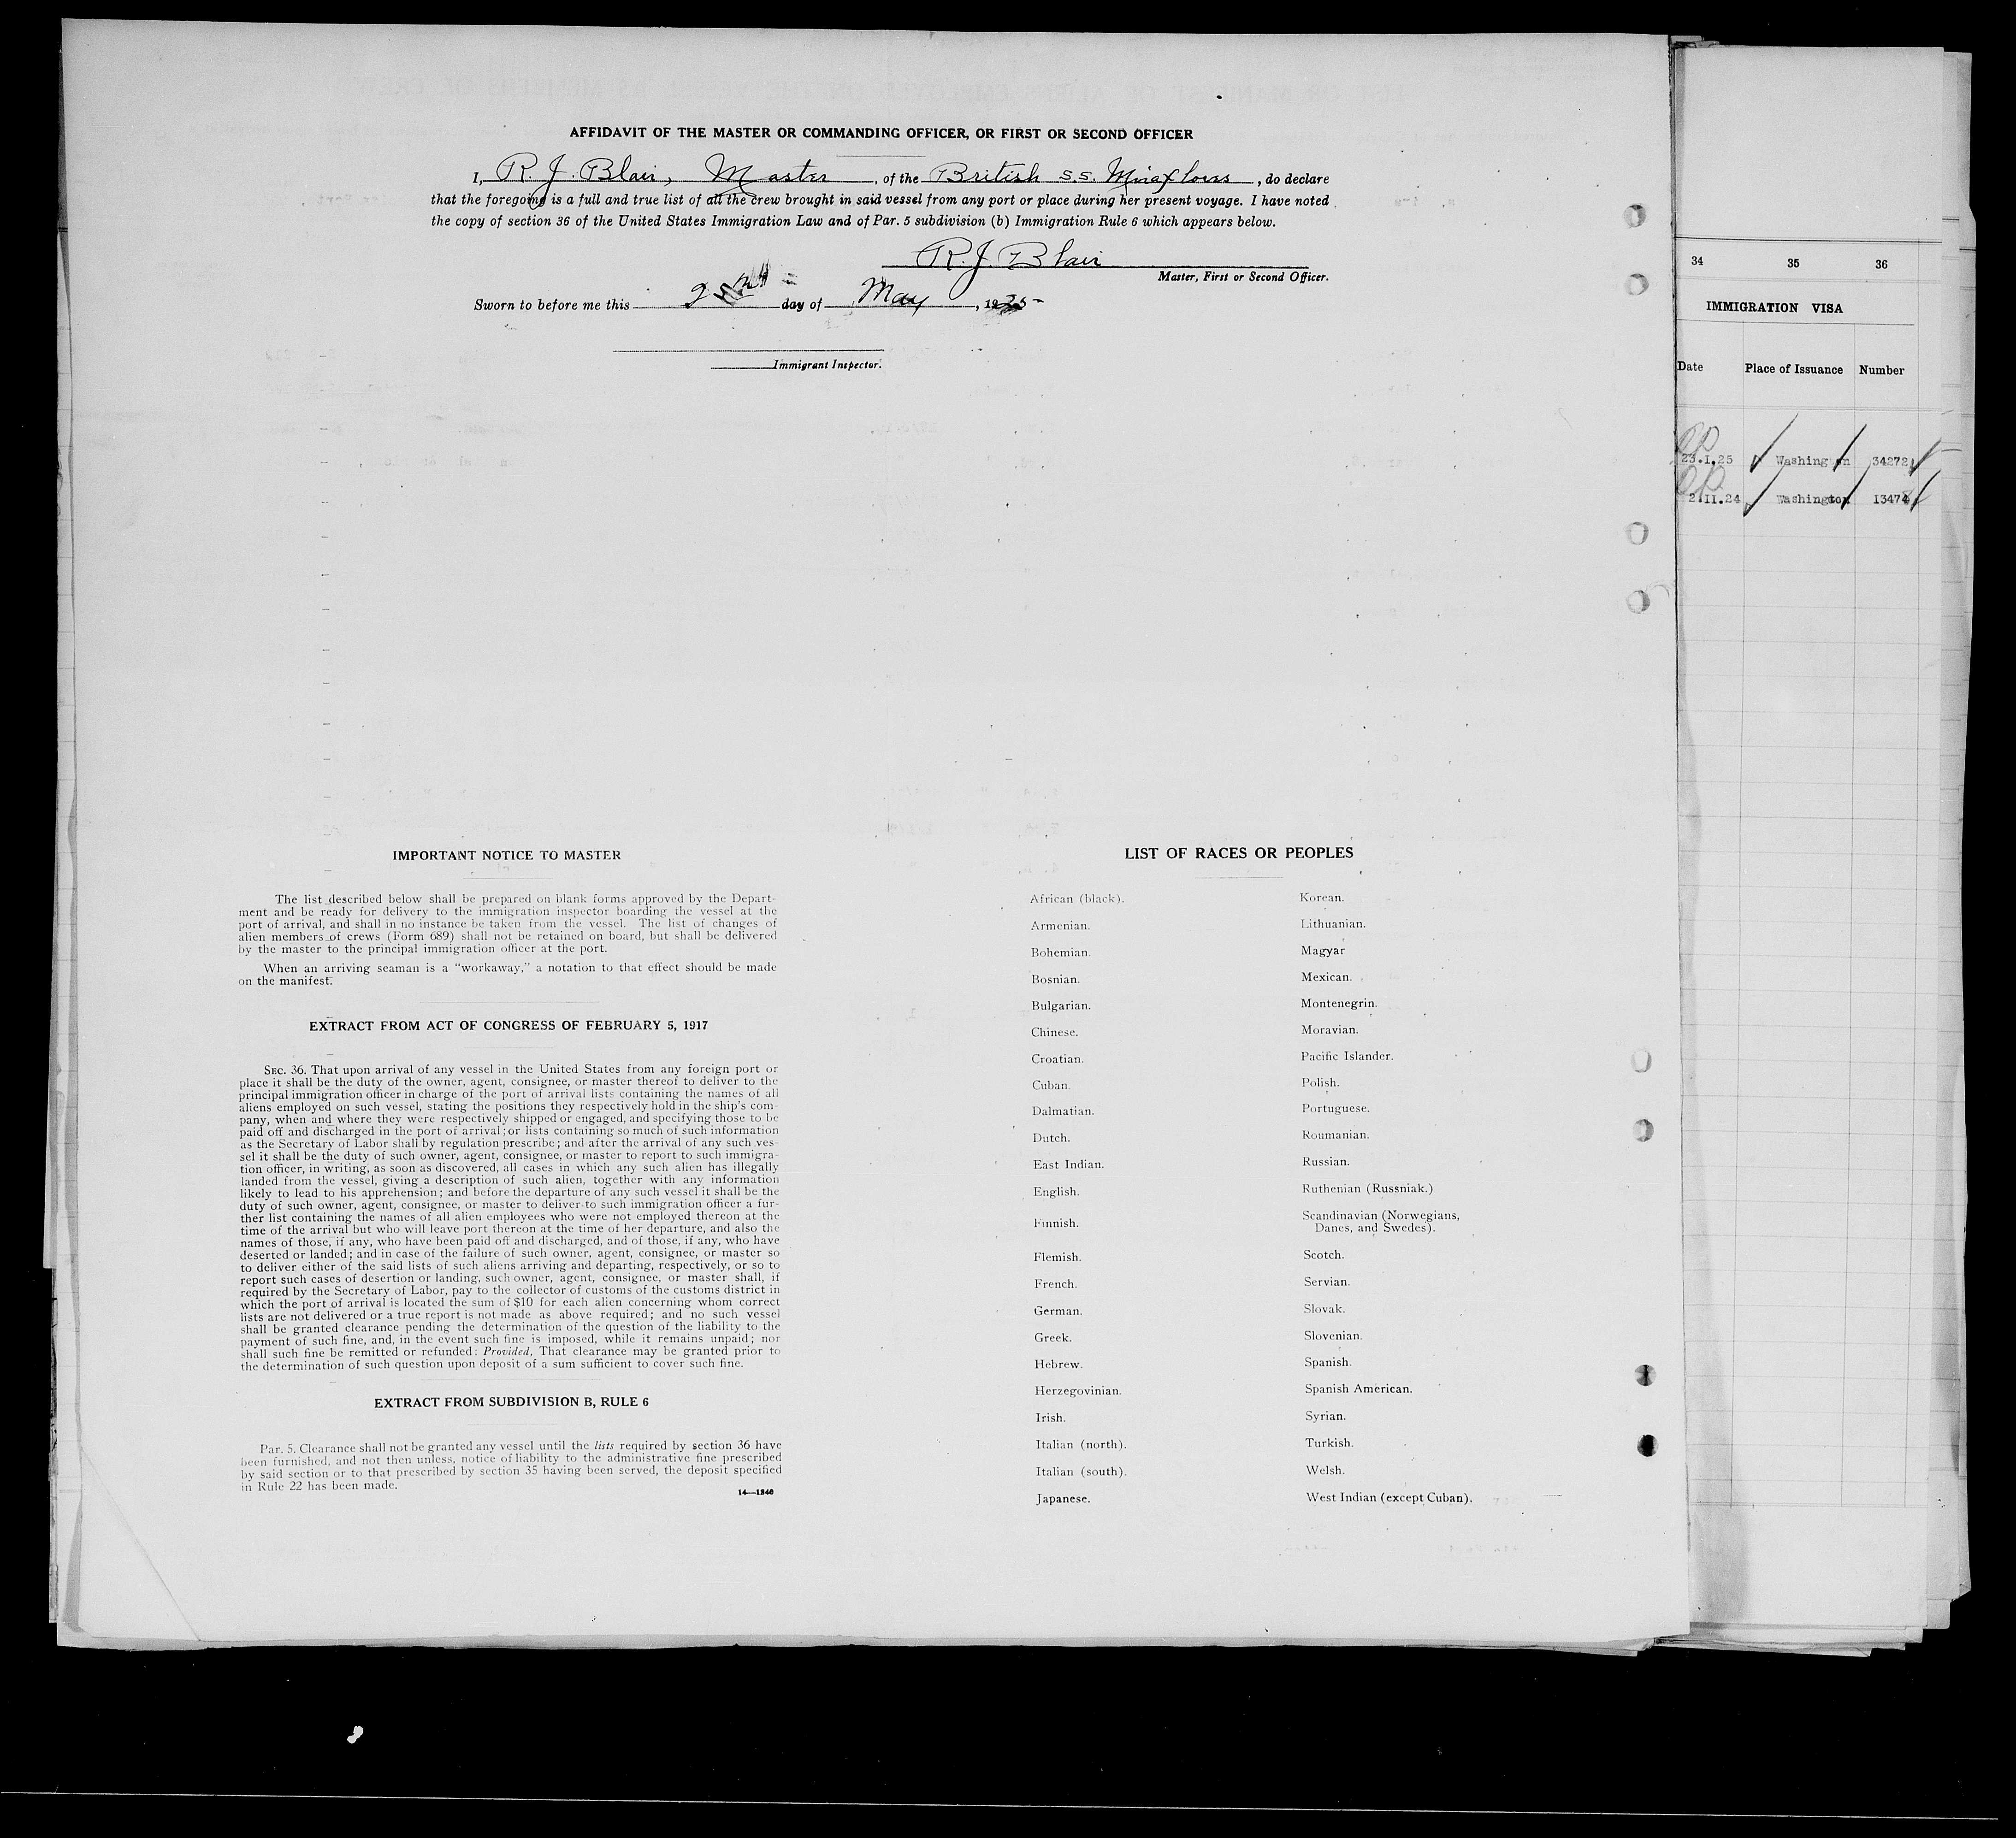 AFFIDAVIT OF THE MASTER OR COMMANDING OFFICER, OR FIRST OR SECOND OFFICER
I, R. J. Blair, Master, of the British s.s. Miraflores, do declare
that the foregoing is a full and true list of all the crew brought in said vessel from any port or place during her present voyage. I have noted
the copy of section 36 of the United States Immigration Law and of Par. 5 subdivision (b) Immigration Rule 6 which appears below.
R. J. Blair
Master, First or Second Officer.
Sworn to before me this day of May, 1925
Immigrant Inspector.
IMPORTANT NOTICE TO MASTER
The list described below shall be prepared on blank forms approved by the Depart-
ment and be ready for delivery to the immigration inspector boarding the vessel at the
port of arrival, and shall in no instance be taken from the vessel. The list of changes of
alien members of crews (Form 689) shall not be retained on board, but shall be delivered
by the master to the principal immigration officer at the port.
When an arriving seaman is a "workaway," a notation to that effect should be made
on the manifest.
EXTRACT FROM ACT OF CONGRESS OF FEBRUARY 5, 1917
SEC. 36. That upon arrival of any vessel in the United States from any foreign port or
place it shall be the duty of the owner, agent, consignee, or master thereof to deliver to the
principal immigration officer in charge of the port of arrival lists containing the names of all
aliens employed on such vessel, stating the positions they respectively hold in the ship's com-
pany, when and where they were respectively shipped or engaged, and specifying those to be
paid off and discharged in the port of arrival; or lists containing so much of such information
as the Secretary of Labor shall by regulation prescribe; and after the arrival of any such ves-
sel it shall be the duty of such owner, agent, consignee, or master to report to such immigra-
tion officer, in writing, as soon as discovered, all cases in which any such alien has illegally
landed from the vessel, giving a description of such alien, together with any information
likely to lead to his apprehension; and before the departure of any such vessel it shall be the
duty of such owner, agent, consignee, or master to deliver to such immigration officer a fur-
ther list containing the names of all alien employees who were not employed thereon at the
time of the arrival but who will leave port thereon at the time of her departure, and also the
names of those, if any, who have been paid off and discharged, and of those, if any, who have
deserted or landed; and in case of the failure of such owner, agent, consignee, or master so
to deliver either of the said lists of such aliens arriving and departing, respectively, or so to
report such cases of desertion or landing, such owner, agent, consignee, or master shall, if
required by the Secretary of Labor, pay to the collector of customs of the customs district in
which the port of arrival is located the sum of $10 for each alien concerning whom correct
lists are not delivered or a true report is not made as above required; and no such vessel
shall be granted clearance pending the determination of the question of the liability to the
payment of such fine, and, in the event such fine is imposed, while it remains unpaid; nor
shall such fine be remitted or refunded: Provided, That clearance may be granted prior to
the determination of such question upon deposit of a sum sufficient to cover such fine.
EXTRACT FROM SUBDIVISION B, RULE 6
Par. 5. Clearance shall not be granted any vessel until the lists required by section 36 have
been furnished, and not then unless, notice of liability to the administrative fine prescribed
by said section or to that prescribed by section 35 having been served, the deposit specified
in Rule 22 has been made.
14—1240
LIST OF RACES OR PEOPLES
African (black).
Armenian.
Bohemian.
Bosnian.
Bulgarian.
Chinese.
Croatian.
Cuban.
Dalmatian.
Dutch.
East Indian.
English.
Finnish.
Flemish.
French.
German.
Greek.
Hebrew.
Herzegovinian.
Irish.
Italian (north).
Italian (south).
Japanese.
Korean.
Lithuanian.
Magyar
Mexican.
Montenegrin.
Moravian.
Pacific Islander.
Polish.
Portuguese.
Roumanian.
Russian.
Ruthenian (Russniak.)
Scandinavian (Norwegians,
Danes, and Swedes).
Scotch.
Servian.
Slovak.
Slovenian.
Spanish.
Spanish American.
Syrian.
Turkish.
Welsh.
West Indian (except Cuban).
34 35 36
IMMIGRATION VISA
Date Place of Issuance Number
23.1.25 Washington 34272
2.II.24 Washington